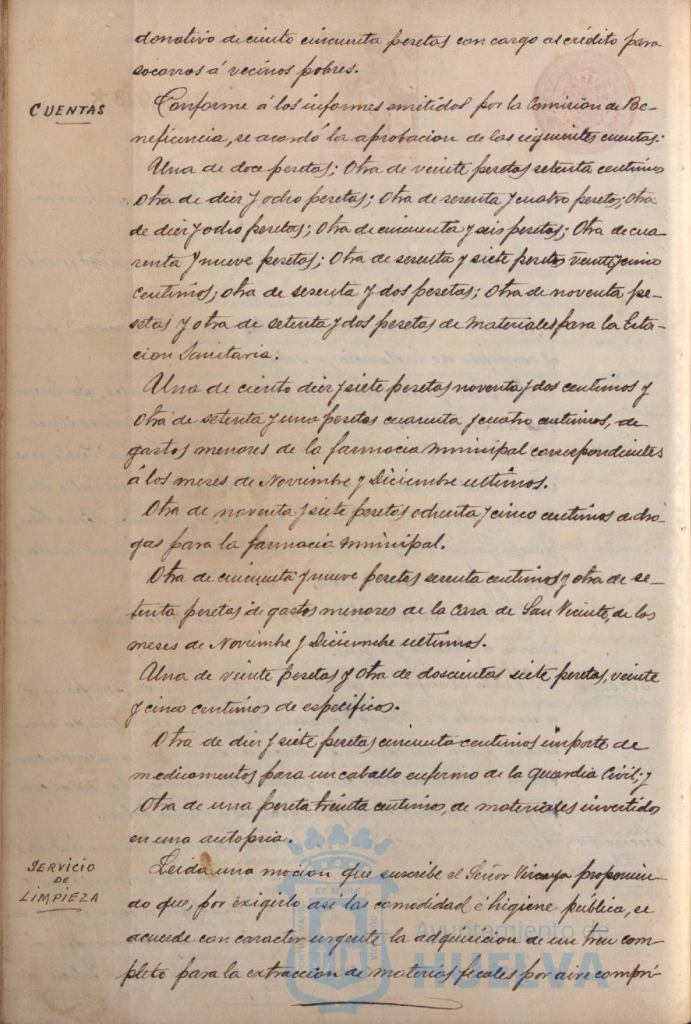 donativo de ciento cincuenta pesetas con cargo al crédito para
socorros á vecinos pobres.
CUENTAS
Conforme á los informes emitidos por la Comision de Be-
neficencia, se acordó la aprobacion de las siguientes cuentas:
Una de doce pesetas; Otra de veinte pesetas setenta centimos
Otra de diez y ocho pesetas; Otra de sesenta y cuatro pesetas; Otra
de diez y ocho pesetas; Otra de cincuenta y seis pesetas; Otra de cua
renta y nueve pesetas; Otra de sesenta y siete pesetas veinte y cinco
centimos; otra de sesenta y dos pesetas; Otra de noventa pe-
setas y otra de setenta y dos pesetas de materiales para la Esta-
cion Sanitaria.
Una de ciento diez y siete pesetas noventa y dos centimos y
Otra de setenta y una pesetas cuarenta y cuatro centimos, de
gastos menores de la farmacia municipal correspondientes
á los meses de Noviembre y Diciembre ultimos.
Otra de noventa y siete pesetas ochenta y cinco centimos de dro-
gas para la farmacia municipal.
Otra de cincuenta y nueve pesetas sesenta centimos y otra de se-
tenta pesetas de gastos menores de la Casa de San Vicente, de los
meses de Noviembre y Diciembre ultimos.
Una de veinte pesetas y Otra de doscientas siete pesetas, veinte
y cinco centimos de especificos.
Otra de diez y siete pesetas cincuenta centimos importe de
medicamentos para un caballo enfermo de la Guardia Civil; y
Otra de una peseta treinta centimos, de materiales invertidos
en una autopsia.
SERVICIO
DE
LIMPIEZA
Leida una mocion que suscribe el Señor Vizcaya proponien-
do que, por exigirlo asi la comodidad é higiene pública, se
acuerde con caracter urgente la adquisicion de un tren com-
pleto para la extraccion de materias fecales por aire compri-
Ayuntamiento de
HUELVA